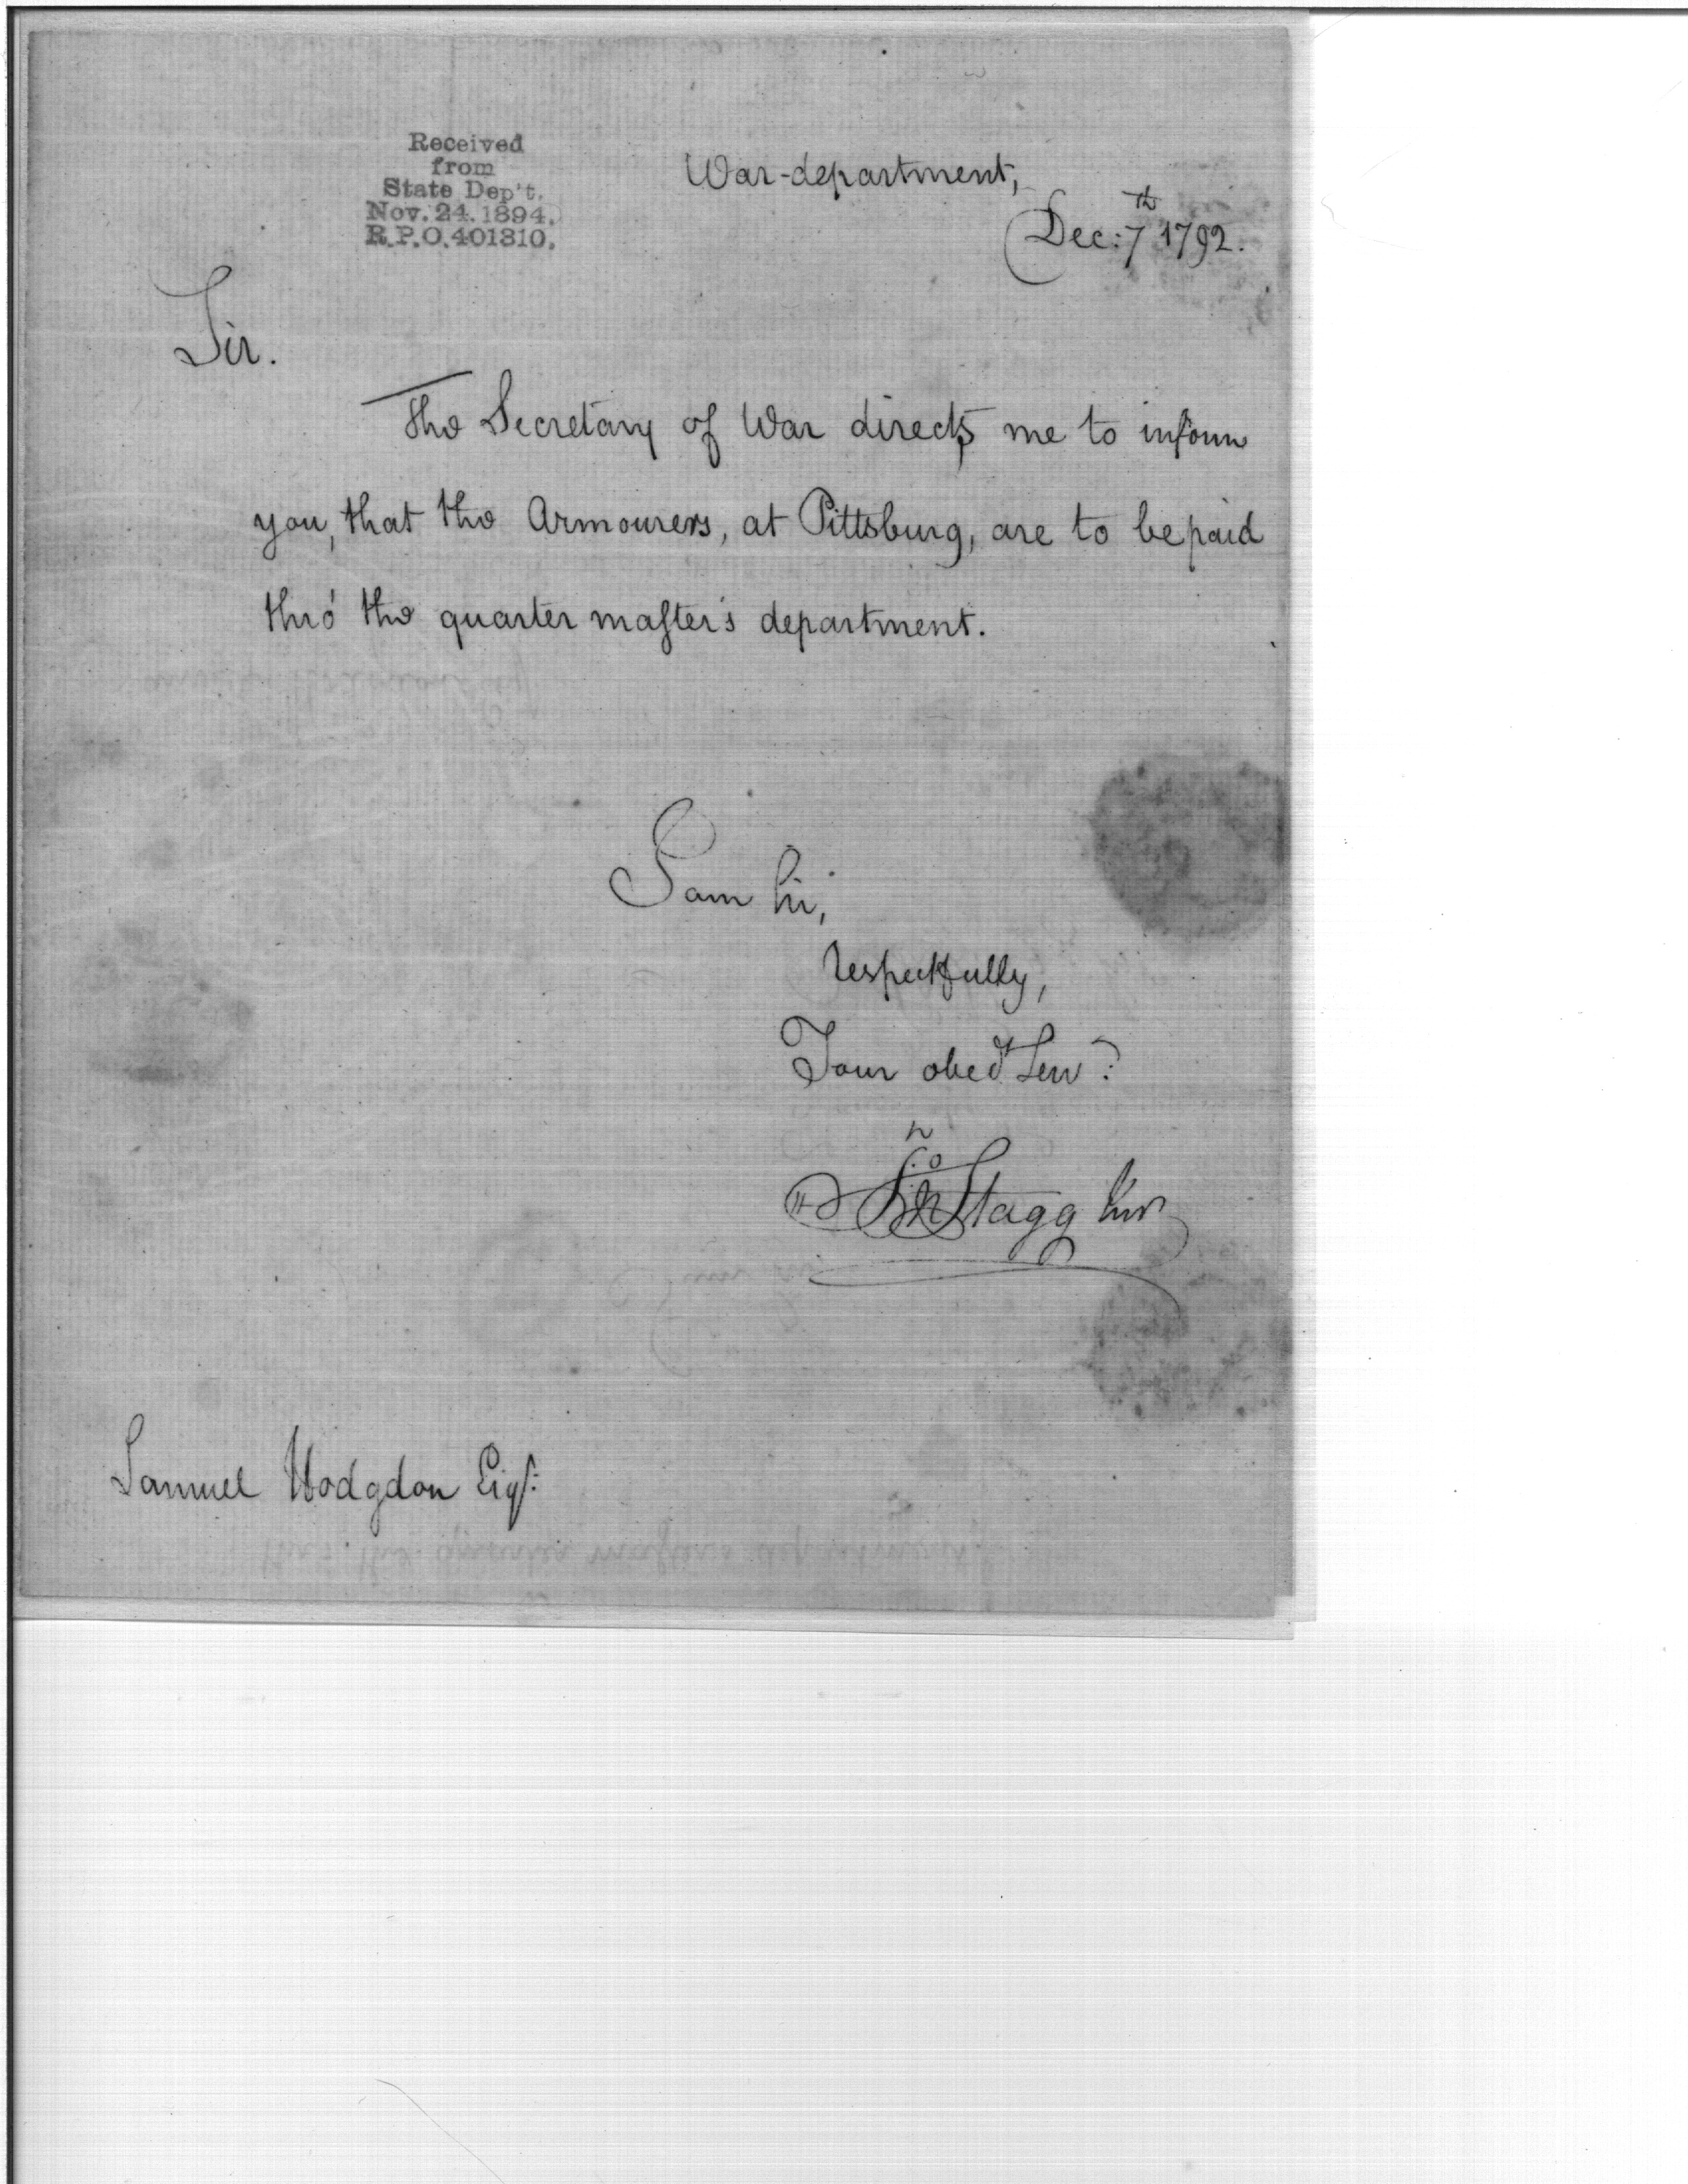 Received
from
State Dep't.
Nov. 24. 1894.
R.P.O. 401310.
War-department,
Dec: 7th 1792.
Sir.
The Secretary of War directs me to inform
you, that the Armourers, at Pittsburg, are to be paid
thro' the quarter master's department.
I am Sir,
respectfully,
Your obedt Serv:
Jno Stagg Junr
Samuel Hodgdon Esqr: